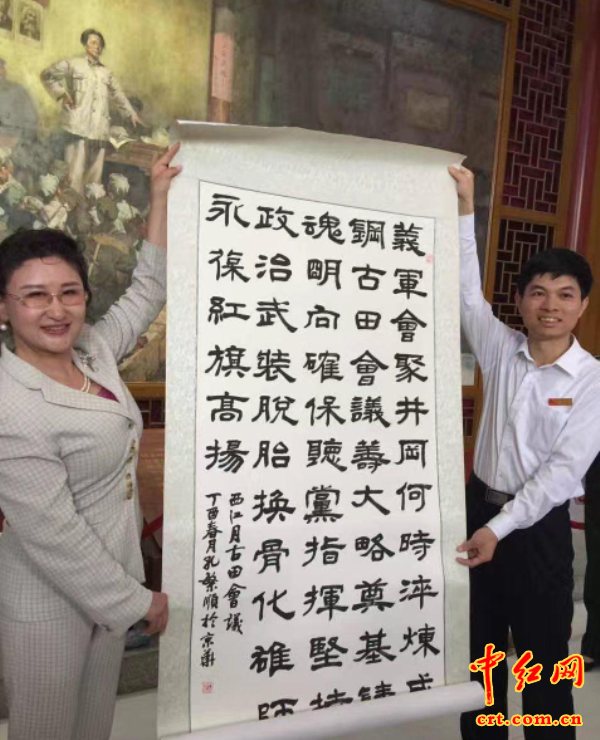 義軍會聚井岡何時淬煉成
鋼古田會議善大略奠基鑄
魂明向確保聽黨指揮堅持
政治武裝脫胎換骨化雄師
永保紅旗高揚
西江月古田會議
丁酉春月孔繁順於京華
中红网
crt.com.cn